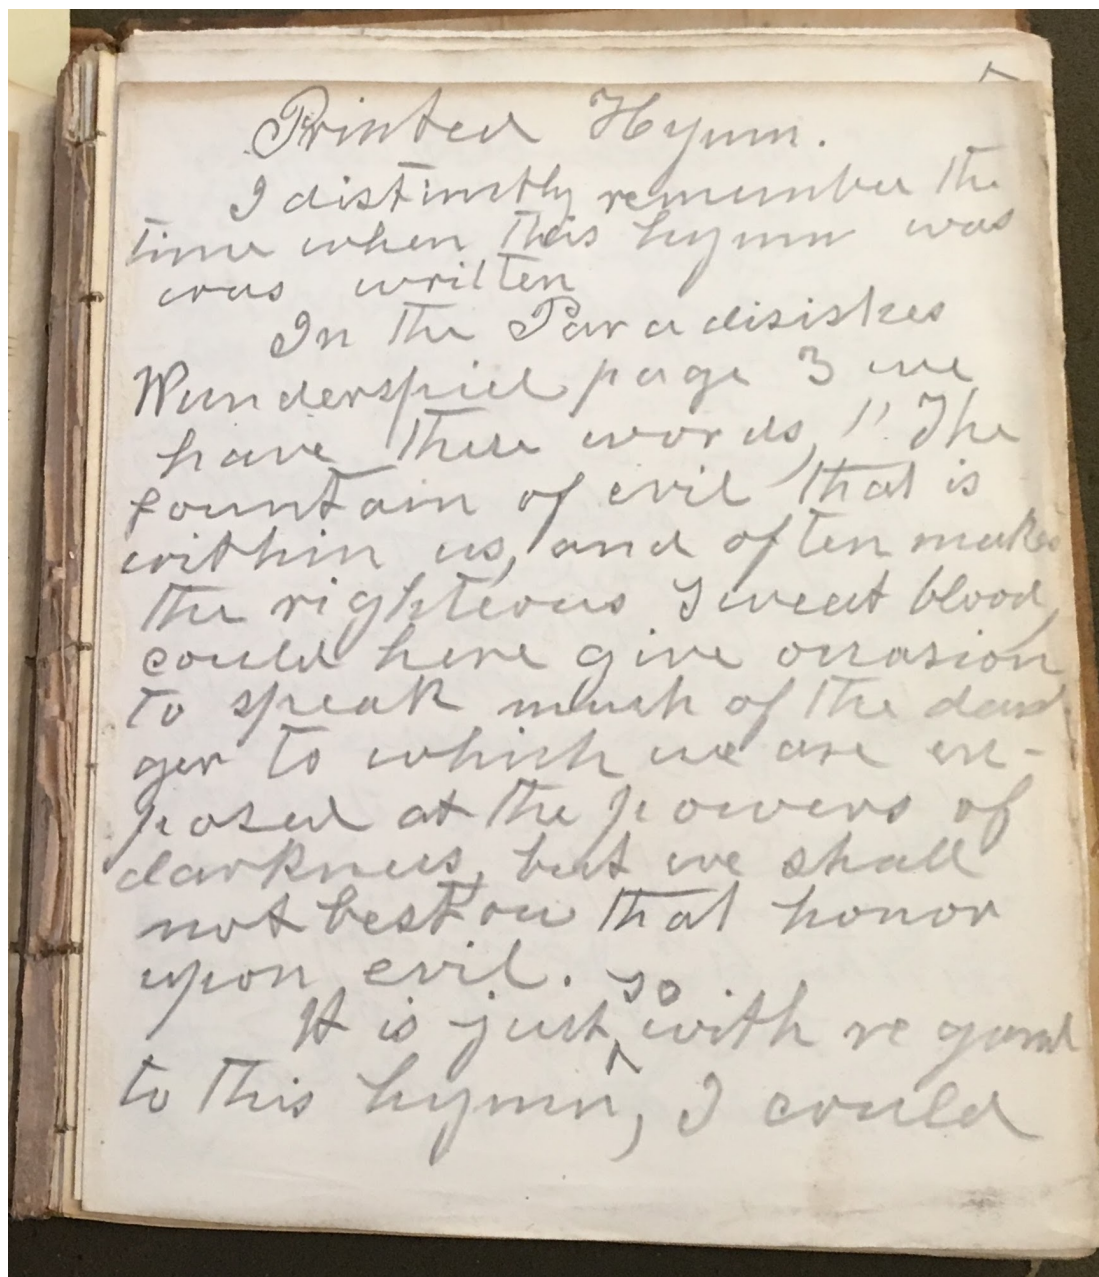 Printed Hymn.
I distinctly remember the
time when this hymn was
was written
In the Paradisiskes
Wunderspiel page 3 we
have these words, "The
fountain of evil that is
within us, and often makes
the righteous sweat blood,
could here give occasion
to speak much of the dan-
ger to which we are ex-
posed at the powers of
darkness, but we shall
not bestow that honor
upon evil.
so
It is just with regard
to this hymn, I could